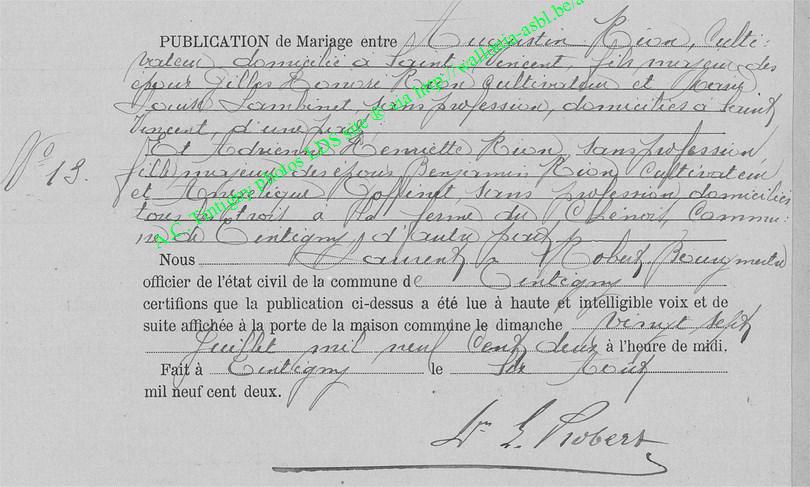 PUBLICATION de Mariage entre Augustin Rion, Culti-
vateur domicilié à Saint Vincent, fils majeur des
époux Gilles Honoré Rion cultivateur et Marie
Louise Lambinet, sans profession, domiciliés à Saint
Vincent, d'une part
Et Adrienne Henriette Rion, sans profession,
fille majeure des époux Benjamin Rion, Cultivateur
et Angélique Goffinet, sans profession domiciliés
tous trois à la ferme du Chenois, Commu-
ne de Tintigny, d'autre part
N° 13.
Nous Laurent Robert Bourgmestre
officier de l'état civil de la commune de Tintigny
certifions que la publication ci-dessus a été lue à haute et intelligible voix et de
suite affichée à la porte de la maison commune le dimanche vingt sept
Juillet mil neuf cent deux à l'heure de midi.
Fait à Tintigny le six Août
mil neuf cent deux.
L. Robert
A.C. Tintigny photos LDS site @ via http://wallonia-asbl.be/